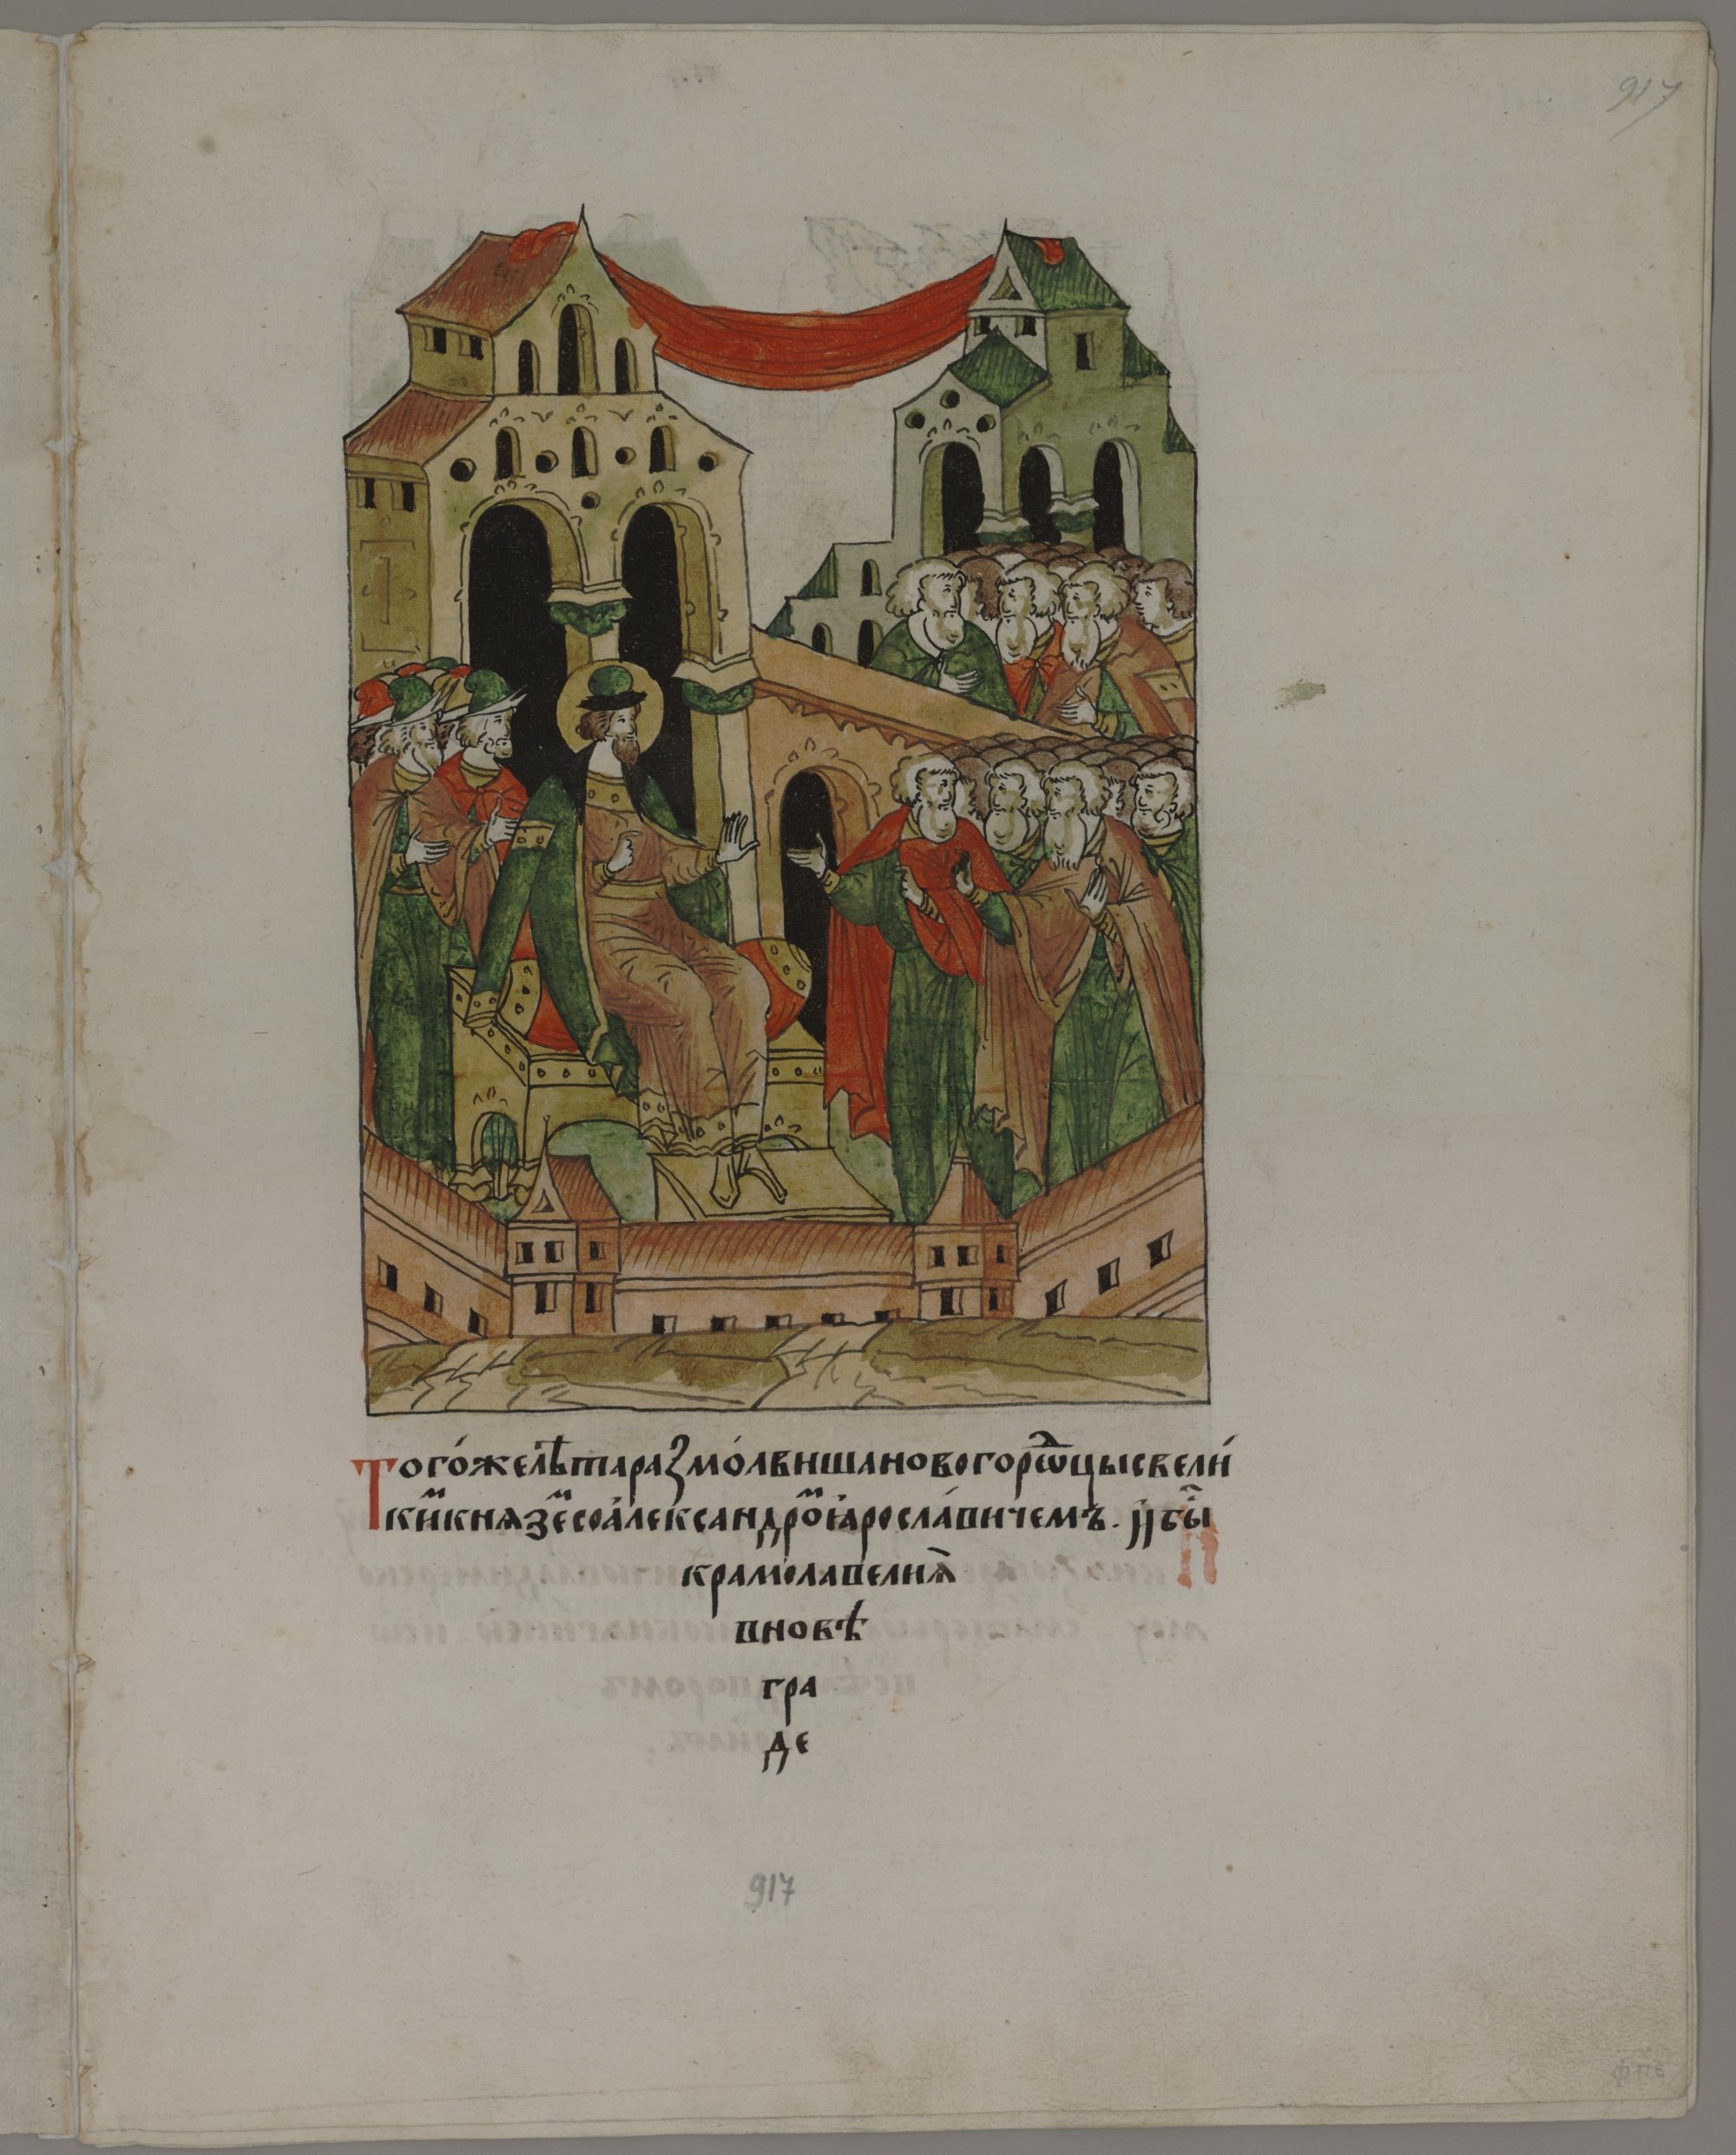 917
Того́желѣ́тараꙁмо́лвишановогорѡⷣцысвели́
киⷨкнѧзеⷨсоа҆леѯандроⷨꙗ҆росла́вичемъ. и҆бы́ⷭ҇
крамолавелиꙗ҆
вновѣ́
гра
де
917
фпе